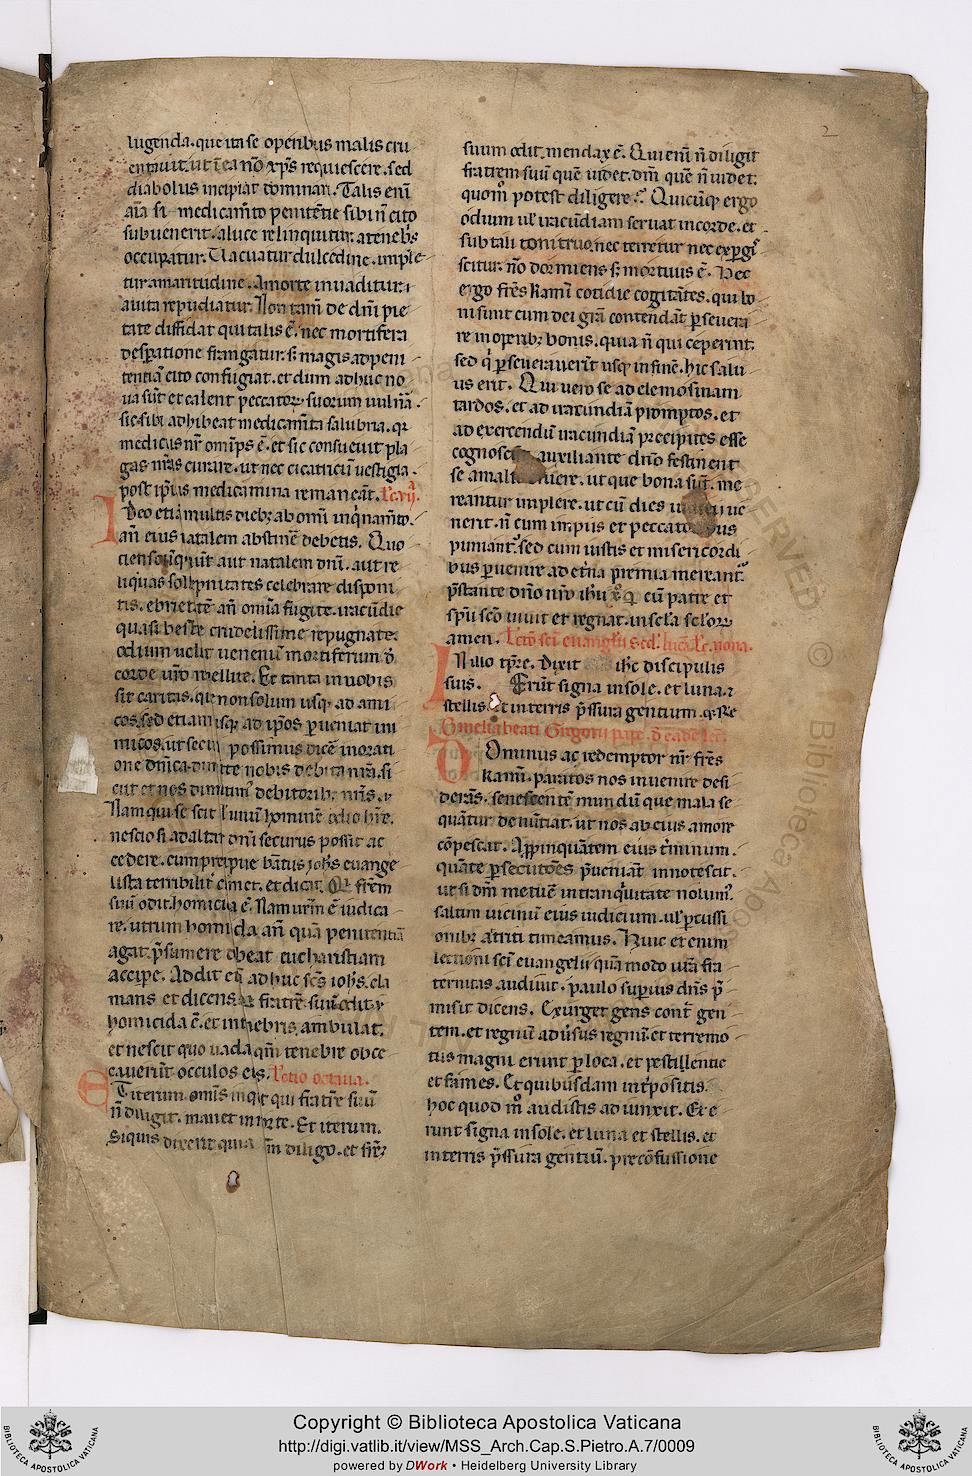 2
lugenda. que ita se operibus malis cru
entauit. ut īea nō xp̄s requiescere. sed
diabolus incipiat dominari. Talis enī
aīa si medicam̄to penitētie sibi n̄ cito
subuenerit. a luce relinquitur. a tenebs̄
occupatur. Uacuatur dulcedine. imple
tur amaritudine. Amorte inuaditur. ⁊
auita repudiatur. Non tam̄ de dn̄i pie
tate diffidat qui talis ē. nec mortifera
desꝑatione frangatur. s; magis ad peni
tentiā cito confugiat. et dum adhuc no
ua sūt et calent peccatoꝝ suorum uulnā.
sic sibi adhibeat medicam̄ta salubria. qꝛ
medicus nr̄ omīps ē. et sic consueuit pla
gas nr̄as curare. ut nec cicatricū uestigia.
post ip̄ius medicamina remaneāt. Lc. vij.
Ideo etiā multis dieb; ab omī inqinam̄to.
an̄ eius natalem abstinē debetis. Quo
ciensc̄uq; aut natalem dn̄i. aut re
liquas sollepnitates celebrare disponi
tis. ebrietātē an̄ omīa fugite. iracūdie
quasi bestie crudelissime repugnate.
odium uelut uenenū mortiferum d̄
corde ur̄o repellite. Et tanta in uobis
sit caritas. que non solum usq; ad ami
cos. sed etiam usq; ad ip̄os ꝑueniat ini
micos. ut secu possimus dicē in orati
one dn̄ica. dimitte nobis debita nr̄a. si
cut et nos dimittim' debitorib; nr̄is.
Nam qui se scit l̄ unum hominē odio hr̄e.
nescio si ad altar dn̄i securus possit ac
cedere. cum precipue bātus ioh̄s euange
lista terribilit̄ clamet. et dicat. Qui fr̄em
suū odit. homicida ē. Nam ur̄m ē iudica
re. utrum homicida an̄ quā penitentiā
agat. p̄sumere debeat eucharistiam
accipe. Addit eī adhuc scs̄ ioh̄s. cla
mans et dicens. Qui fratrē suū odit.
homicida ē. et in tenebris ambulat.
et nescit quo uada qm̄ tenebre obce
cauerūt occulos eis. Lectio octaua.
Et iterum. omīs inqt qui fratr̄e suū
n̄ diligit. manet in morte. Et iterum.
Siquis dixerit quia dm̄ diligo. et fr̄e
suum odit. mendax ē. Qui enī n̄ diligit
fratrem suū quē uidet. dm̄ quē n̄ uidet.
quom̄ potest diligere. Quicūq; ergo
odium ul' iracūdiam seruat in corde. et
sub tali tonitruo. nec terretur nec exꝑgi
scitur. nō dormiens s; mortuus ē. Hec
ergo fr̄es karim̄ cotidie cogitātes. qui bo
ni sunt cum dei gr̄a contendāt ꝑseuera
re in operib; bonis. quia n̄ qui ceperint.
sed q̇ ꝑseuerauerīt usq; in finē. hic salu
us erit. Qui uero se ad elemosinam
tardos. et ad iracundiā promptos. et
ad exercendū iracundiā precipites esse
cognoscūt auxiliante dn̄o festinent
se amalis eruere. ut que bona sūt. me
reantur implere. ut cū dies iudicij ue
nerit. n̄ cum impiis et peccatoribus
puniant'. sed cum iustis et misericordi
bus ꝑuenire ad etn̄a premia mereant'.
p̄stante dn̄o nr̄o ih̄u xp̄o q cū patre et
sp̄u sc̄o uiuit et regnat. in scl̄a scl̄oꝝ
amen. Lectō sc̄i euanglīi scd̄. lucā. Lc. nona.
In illo tp̄re. Dixit ih̄c discipulis
suis. Erūt signa in sole. et luna. ⁊
stellis. Et in terris p̄ssura gentium. ⁊ Re
Omelia beati Gregorij pape. d̄ eadē lc̄ī.
Dominus ac redemptor nr̄ fr̄es
karim̄. paratos nos inuenire desi
derās. senescentē mundū que mala se
quātur denūtiat. ut nos ab eius amore
cōpescat. Appinquātem eius t̄minum.
quāte ꝑsecutōes p̄ueniāt innotescit.
ut si dm̄ metuē in tranq̇litate nolum'.
saltim uicinū eius iudicium. ul' ꝑcussi
onib; at̄riti timeamus. Huic et enim
lectioni sc̄i euangelii quā modo ur̄a fra
ternitas audiuit. paulo superius dn̄s p̄
misit dicens. Exurget gens cont̄ gen
tem. et regnū aduersus regnū. et terremo
tus magni erunt ꝑ loca. et pestillentie
et fames. Et quibusdam int̄positis.
hoc quod m̊ audistis adiunxit. Et e
runt signa in sole. et luna et stellis. et
in terris p̄ssura gentiū. pre cōfussione
Copyright © Biblioteca Apostolica Vaticana
http://digi.vatlib.it/view/MSS_Arch.Cap.S.Pietro.A.7/0009
powered by DWork • Heidelberg University Library
BIBLIOTECA APOSTOLICA VATICANA
BIBLIOTECA APOSTOLICA VATICANA